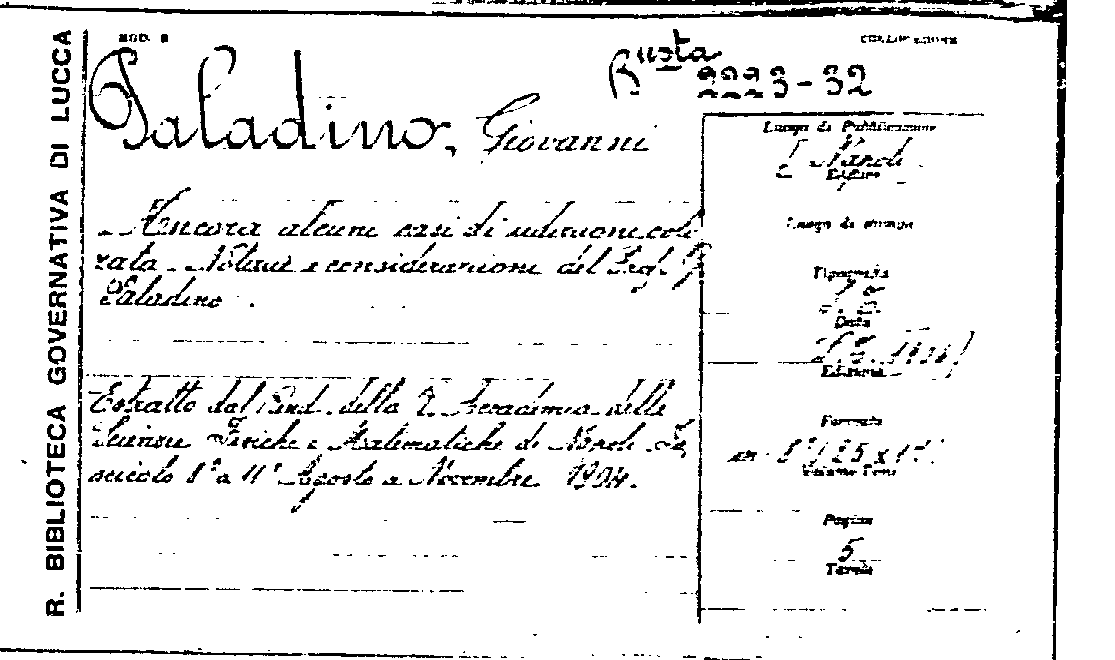 R. BIBLIOTECA GOVERNATIVA DI LUCCA
MOD. B
COLLOCAZIONE
Busta
2223-32
Paladino, Giovanni
Ancora alcuni casi di colo
rata. Notizie e considerazioni del Prof. G.
Paladino.
Estratto dal Rend. della R. Accademia delle
Scienze Fisiche e Matematiche di Napoli. Fa
scicolo 8° a 11° Agosto a Novembre 1904.
Luogo di Pubblicazione
Napoli
Editore
Luogo di stampa
Tipografia
Data
Edizione
Formato
in 8° (25 x
Volume Tomi
Pagine
5
Tavole